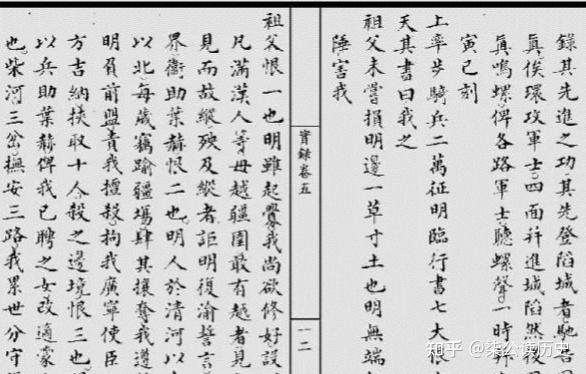 錄其先進之功其先登陷城者馳告
真俟環攻軍士四面并進城陷然後
真鳴螺俾各路軍士聽螺聲一時
寅巳刻
上率步騎兵二萬征明臨行書七大
天其書曰我之
祖父未嘗損明邊一草寸土也明無端
陲害我
實錄卷五
一二
祖父恨一也明雖起釁我尚欲修好設
凡滿漢人等毋越疆圉敢有越者見
見而故縱殃及縱者詎明復渝誓言
界衛助葉赫恨二也明人於清河以
以北每歲竊踰疆場肆其攘奪我遵
明負前盟責我擅殺拘我廣寧使臣
方吉納挾取十人殺之邊境恨三也
以兵助葉赫俾我已聘之女改適蒙
也柴河三岔撫安三路我累世分守
知乎 @柒公读历史